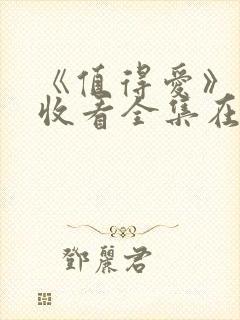 《值得爱》
收看全集在
鄧麗君